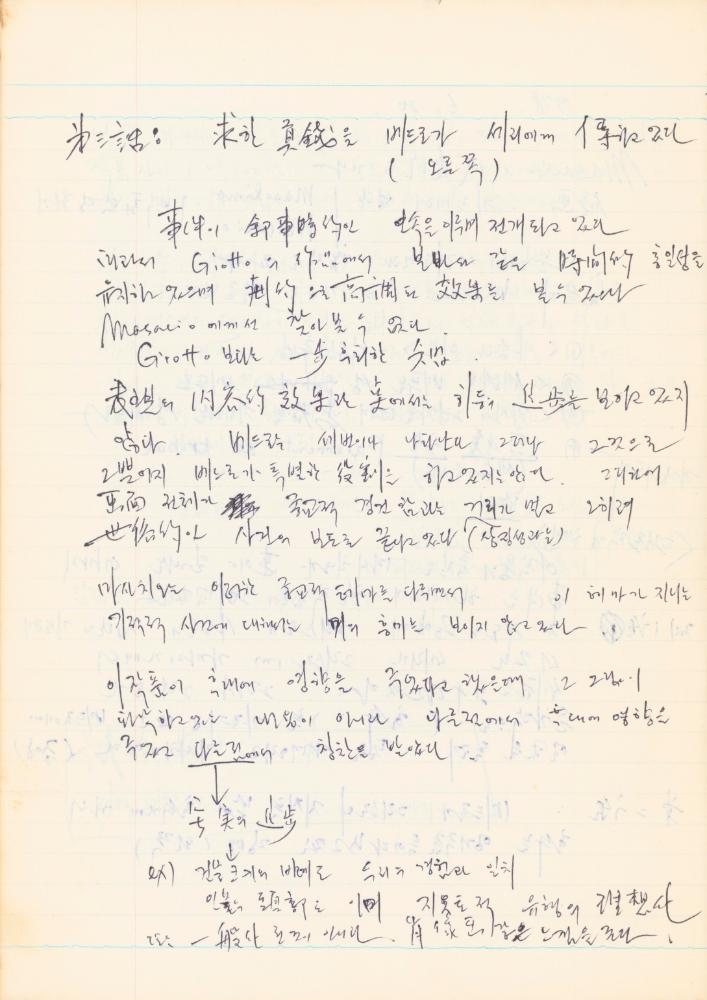 第三話: 求한 真錢을 베드로가 세리에게 傳하고 있다
( 오른쪽 )
事件이 敍事時的인 연속을 이루며 전개되고 있다
따라서 Giotto의 作品에서 볼 바와 같은 時間的 통일성을
유지하고 있으며 劇的으로 高調된 效果를 볼 수 있으나
Masacio에게서 찾아볼 수 없다.
Giotto 보다는 一步 후퇴한 수법.
表現의 内容的 效果란 点에서는 하등의 進步를 보이고 있지
않다. 베드로는 세번이나 나타난다 그러나 그것으로
그뿐이지 베드로가 특별한 役割을 하고있지는 않다.
画面 전체가 종교적 경건함과는 거리가 멀고 오히려
世俗的인 사건의 보도로 끝나고 있다 (상징성과는)
마사치오는 이러한 종교적 테마를 다루면서 이 테마가 지니는
기적적 사건에 대해서는 별 흥미를 보이지 않고 있다.
이 작품이 후대에 영향을 주었다고 했을때 그 그림이
내용이 아니라 다른점에서 후대에 영향을
주었고 다른점에서 칭찬을 받았다.
写実의 進步
ex) 건물크기의 비례도 우리의 경험과 일치
인물의 도 이미 지옷토적 유형의 理想化
또는 一般化 된 것이 아니라. 肖像画 같은 느낌을 준다.